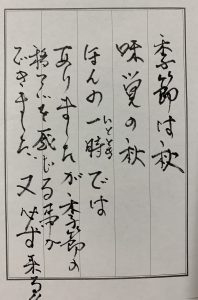 季節は秋
味覚の秋
ほんの一時では
ひととき
ありましたが季節の
移ろいを感じる事が
できました 又必ず来る